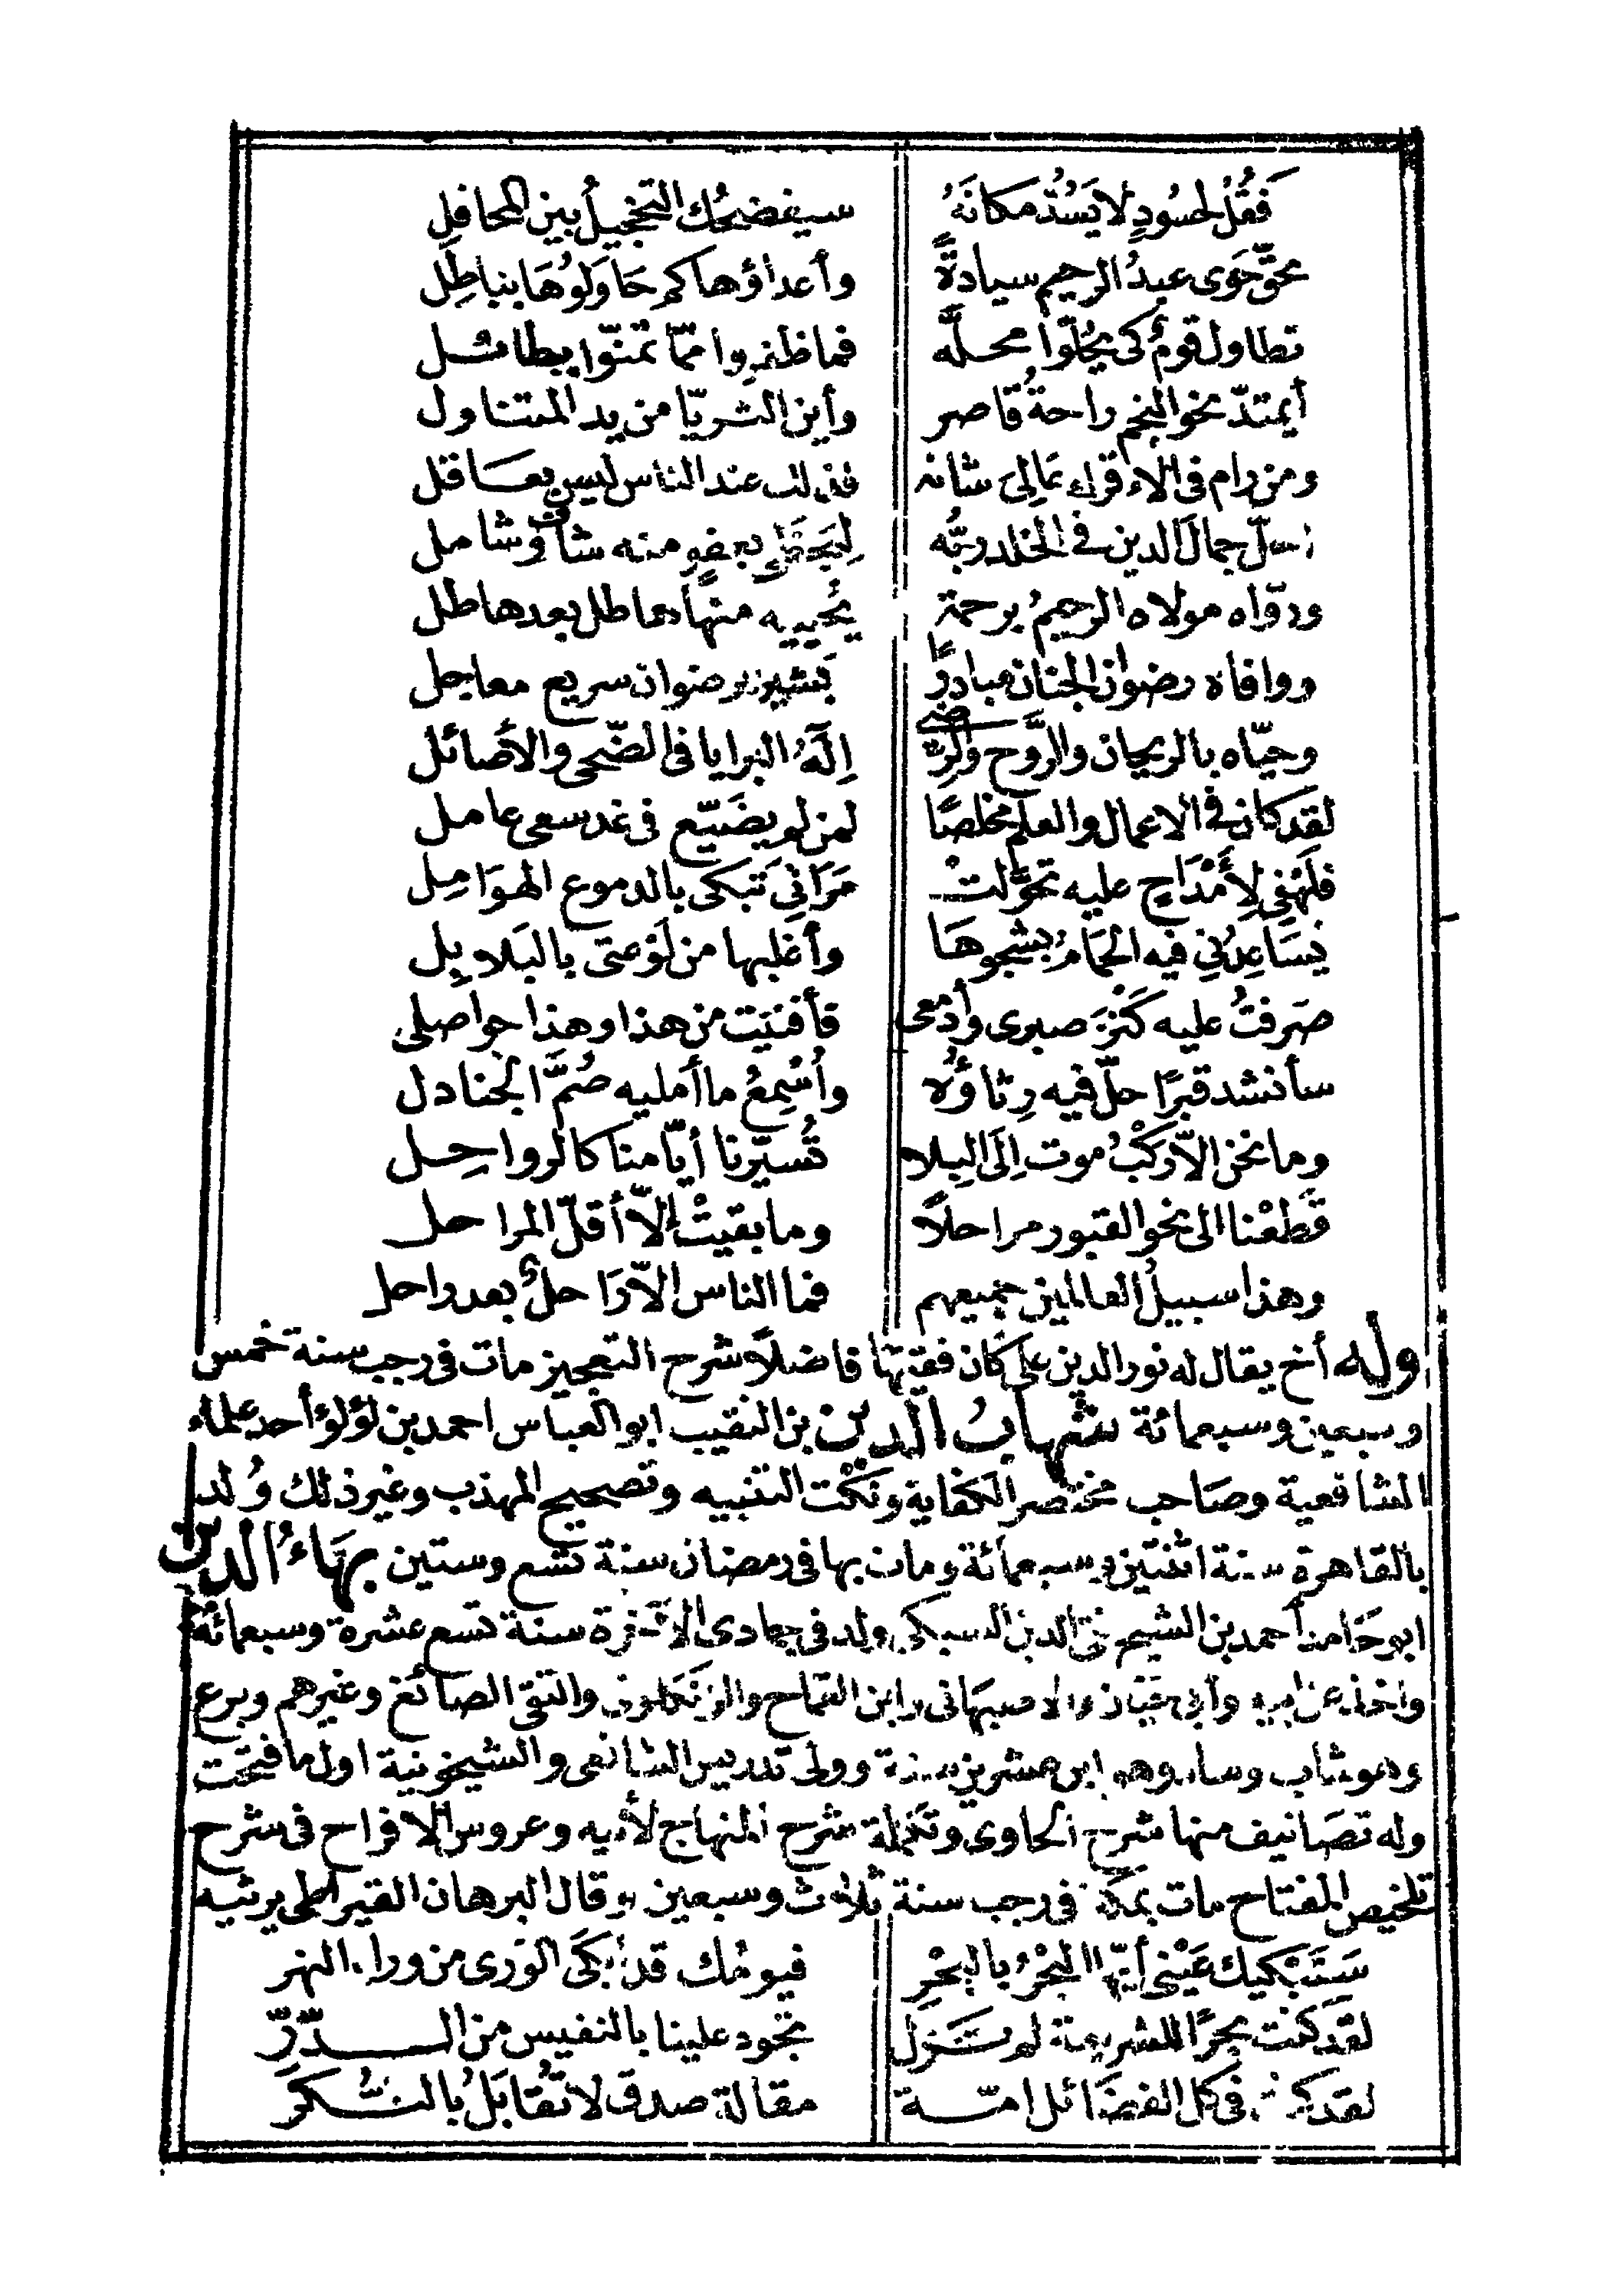 فَقُلْ لحسُودٍ لا يَسُدُّ مكانَهُ سيفضحُك التخجيلُ بين المحافلِ
بحقّ حَوَى عبدُ الرحيم سيادةً وأعداؤها كم حَاوَلُوهَا بباطِلِ
تطاول قومٌ كى يحُلّوا محلَّه فما ظفروا ممّا تمنّوا بطائـل
أيمتدّ نحو النجم راحةُ قاصر وأين الثريّا من يد المتناول
ومن رام فى الاقراء عَالِىَ شانه فذلك عند الناس ليس بعَاقل
جمالَ الدين فى الخلد ربُّه ليَحظى بعفوٍ منه شافٍ وشامل
وروّاه مولاه الرحيمُ برحمة يُحييه منها هاطل بعد هاطل
ووافاه رضوانُ الجنان مبادرًا بَشيرًا برضوان سريع معاجل
وحيّاه بالريحان والرَّوح والرِّضى إِلَهُ البرايا فى الضّحى والأصائل
لقد كان فى الاعمال والعلم مخلصًا لمن لم يضَيّع فى غد سعى عامل
فلَهْفِى لِأَمْدَاحٍ عليه تحوَّلتْ مَرَاثِىَ تبكى بالدموع الهوَامِل
يُسَاعِدُنِى فيه الحمَامُ بشجوهَا وأغلبها من لَوْعتى بالبَلابِل
صَرفتُ عليه كَنْزَ صبرى وأدمعى فأفنيَت من هذا وهذا حواصلى
سأنشد قبرًا حلّ فيه رِثاؤُه وأُسْمِعُ ما أمليه صُمَّ الجنادل
وما نحن الاّ رَكْبُ موت إِلى البِلا تُسيّرنا أيّامنا كالرواحِل
قَطعْنا الى نحو القبور مراحلاً وما بقيتْ إلاّ أقلّ المراحل
وهذا سبيلُ العالمين جميعهم فما الناس الاّ رَاحلٌ بعد راحل
وله أخ يقال له نور الدين على كان فقيهًا فاضلاً شرح التعجيز مات فى رجب سنة خمس
وسبعين وسبعمائة شهابُ الدين بن النقيب ابو العباس احمد بن لؤلؤ أحد علماء
الشافعية وصَاحب مختصر الكفاية ونكت التنبيه وتصحيح المهذب وغير ذلك وُلد
بالقاهرة سنة اثنتين وسبعمائة ومات بها فى رمضان سنة تسع وستين بهَاءُ الدين
ابو حَامد أحمد بن الشيخ تقى الدين السبكى ولد فى جمادى الآخرة سنة تسع عشرة وسبعمائة
واخذ عن ابيه وأبى حَيّان والاصبهانى وابن القمّاح والزنكلونى والتقى الصائغ وغيرهم وبرع
وهو شاب وساد وهو ابن عشرين سنة وولى تدريس الشافعى والشيخونية اول ما فتحت
وله تصَانيف منها شرح الحاوى وتكملة شرح المنهاج لأبيه وعروس الافراح فى شرح
تلخيص المفتاح مات بمكة فى رجب سنة ثلاث وسبعين وقال البرهان القيراطى يرثيه
سَتَبْكيك عَيْنى أيّها البَحْرُ بالبَحْرِ فيومُك قد أبكَى الوَرى من وراء النهر
لقد كنت بحرًا للشريعة لم تـزل تجود علينا بالنفيس من الـدّرِّ
لقد كنت فى كل الفضَائل امّـة مقالة صدق لا تُقابَلُ بالنُـكرِ